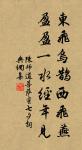 東飛烏鵲西飛燕
盈盈一水經年見
陳師道菩薩蠻七夕詞